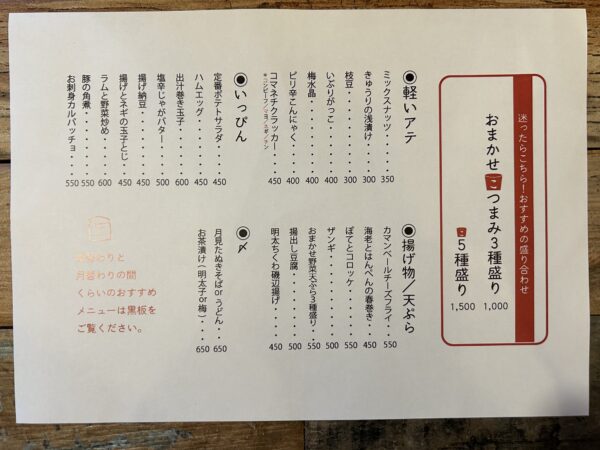 迷ったらこちら!おすすめの盛り合わせ
おまかせ つまみ3種盛り 1,000
5種盛り 1,500
◉軽いアテ
ミックスナッツ・・・・350
きゅうりの浅漬け・・・300
枝豆・・・・・・・・・300
いぶりがっこ・・・・・400
梅水晶・・・・・・・・400
ピリ辛こんにゃく・・・400
コマネチクラッカー・・450
◉揚げ物/天ぷら
カマンベールチーズフライ・・550
海老とはんぺんの春巻き・・・450
ぽてとコロッケ・・・・・・・550
ザンギ・・・・・・・・・・・500
おまかせ野菜天ぷら3種盛り・・550
揚出し豆腐・・・・・・・・・500
明太ちくわ磯辺揚げ・・・・・450
◉いっぴん
定番ポテトサラダ・・・450
ハムエッグ・・・・・・450
出汁巻き玉子・・・・・600
塩辛じゃがバター・・・500
揚げ納豆・・・・・・・450
揚げとネギの玉子とじ・・450
ラムと野菜炒め・・・・600
豚の角煮・・・・・・・550
お刺身カルパッチョ・・550
◉〆
月見たぬきそば or うどん・・650
お茶漬け(明太子or梅)・・・650
替わりと
月替わりの間
くらいのおすすめ
メニューは黒板を
ご覧ください。